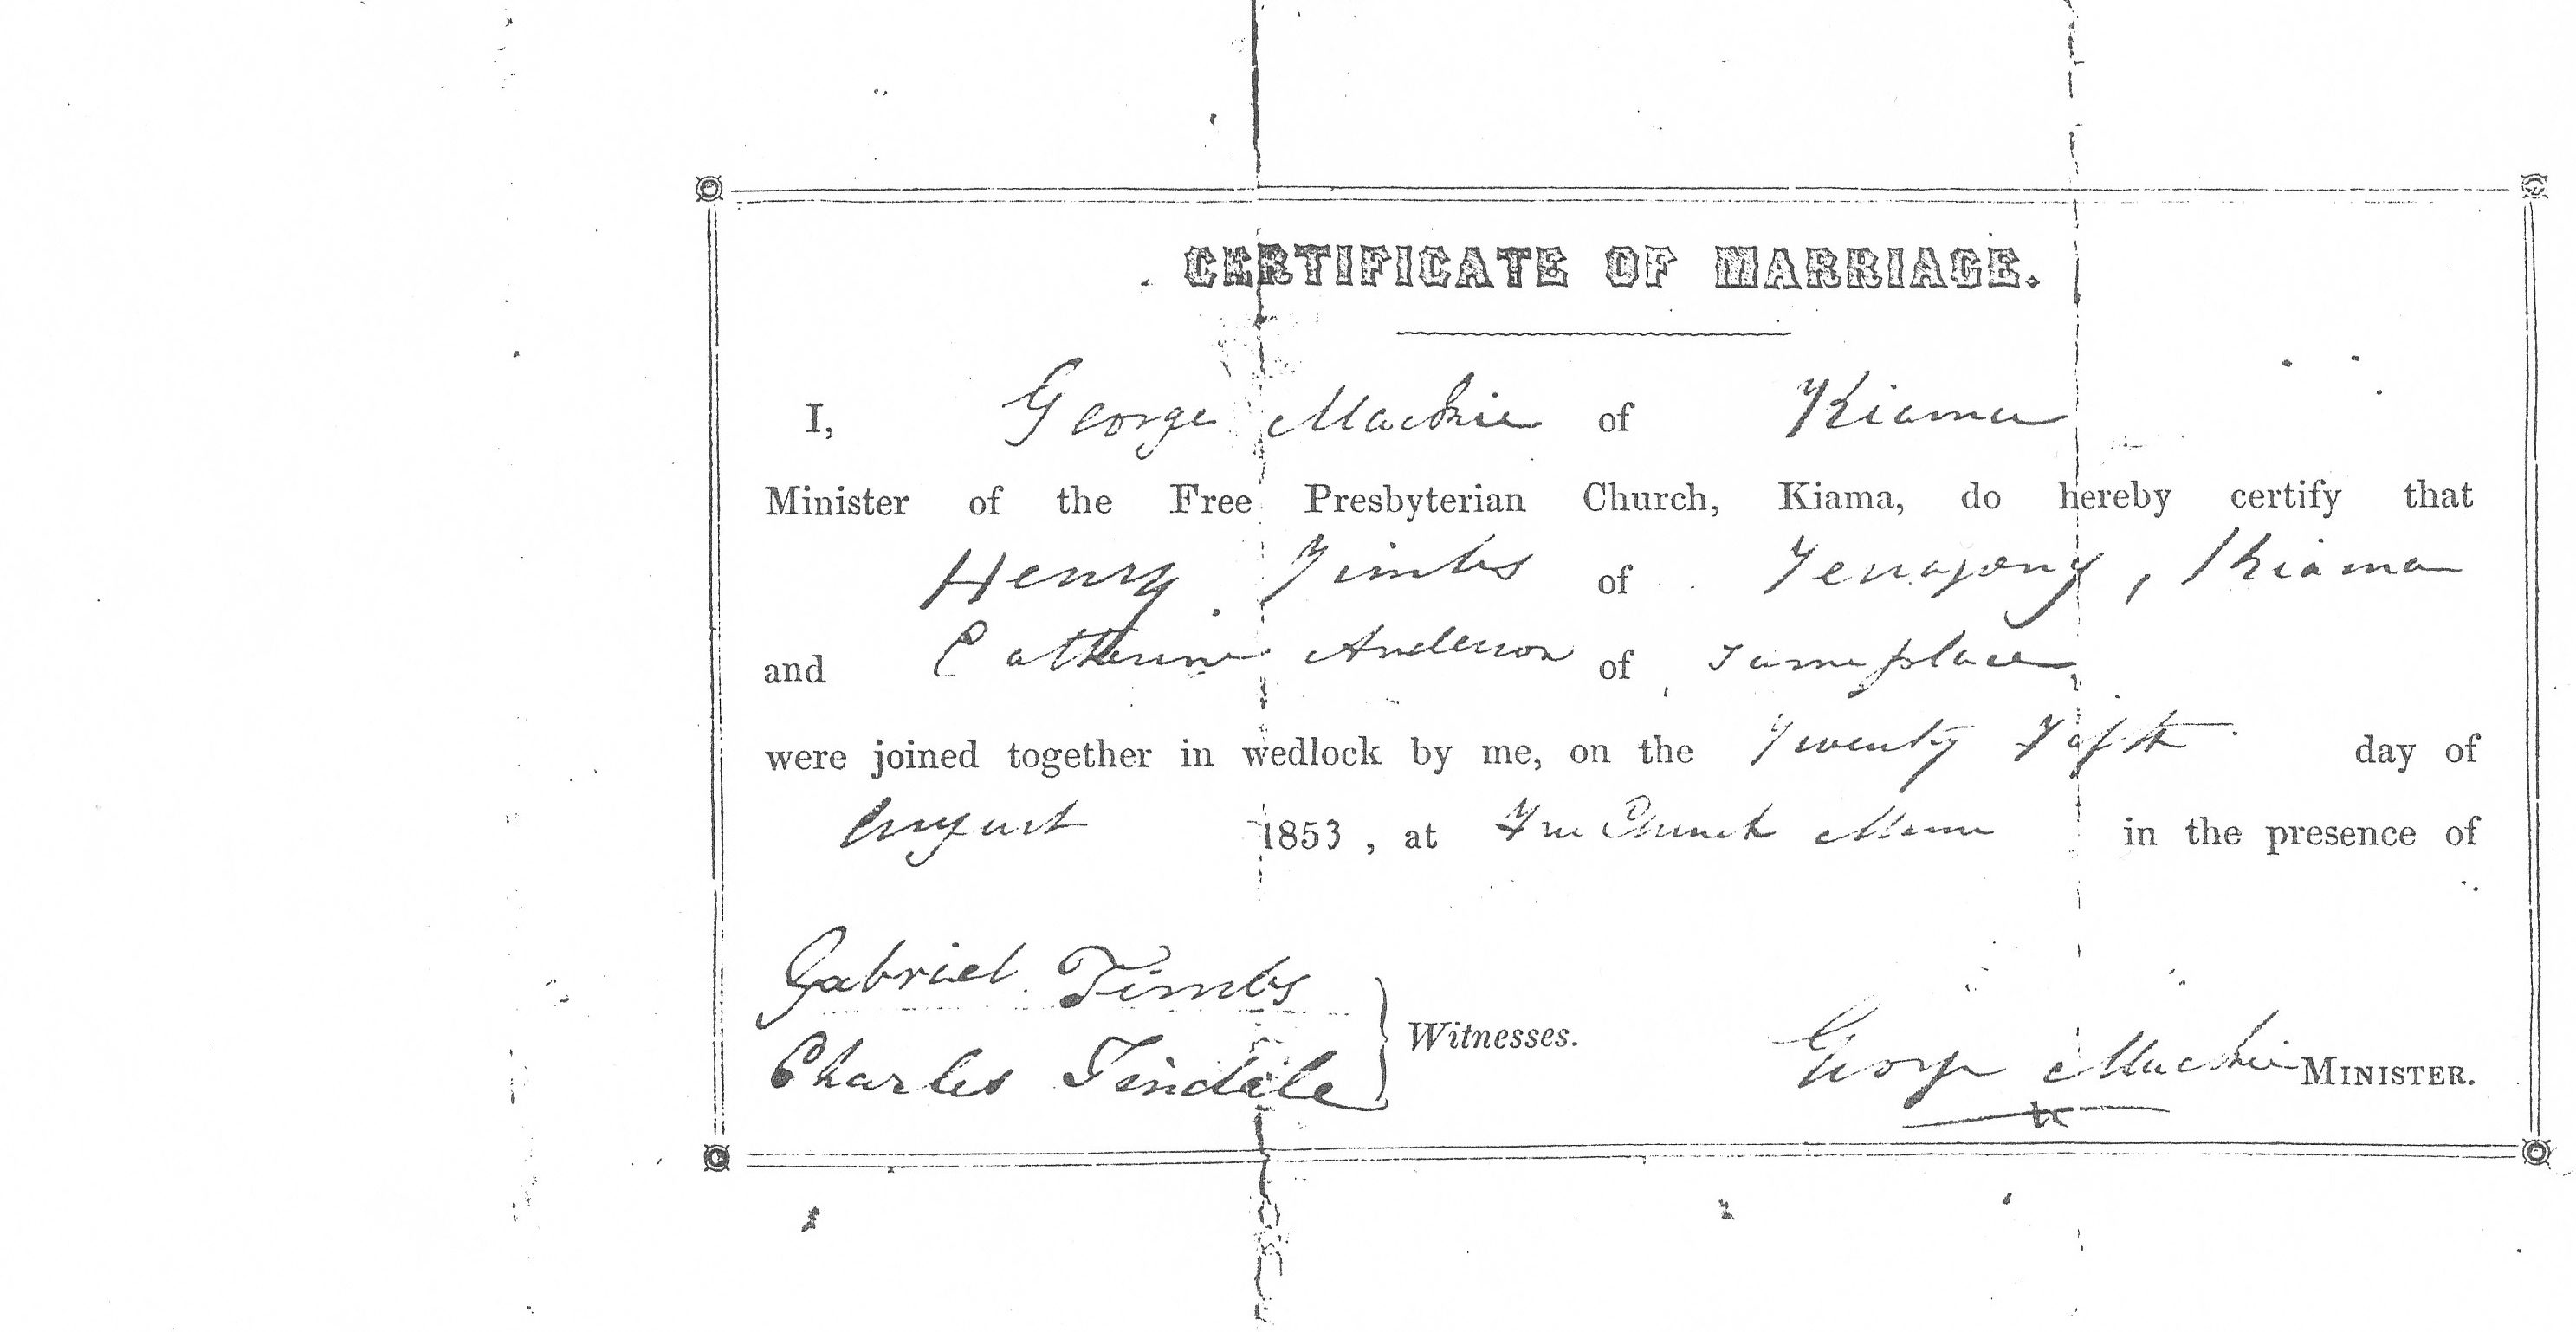 CERTIFICATE OF MARRIAGE.
I, George Mackie of Kiama
Minister of the Free Presbyterian Church, Kiama, do hereby certify that
Henry Timbs of , Kiama
and Catherine Anderson of same place
were joined together in wedlock by me, on the Twenty Fifth day of
August 1853, at Free Church Manse in the presence of
Gabriel Timbs
Charles Tindale
Witnesses.
George Mackie MINISTER.